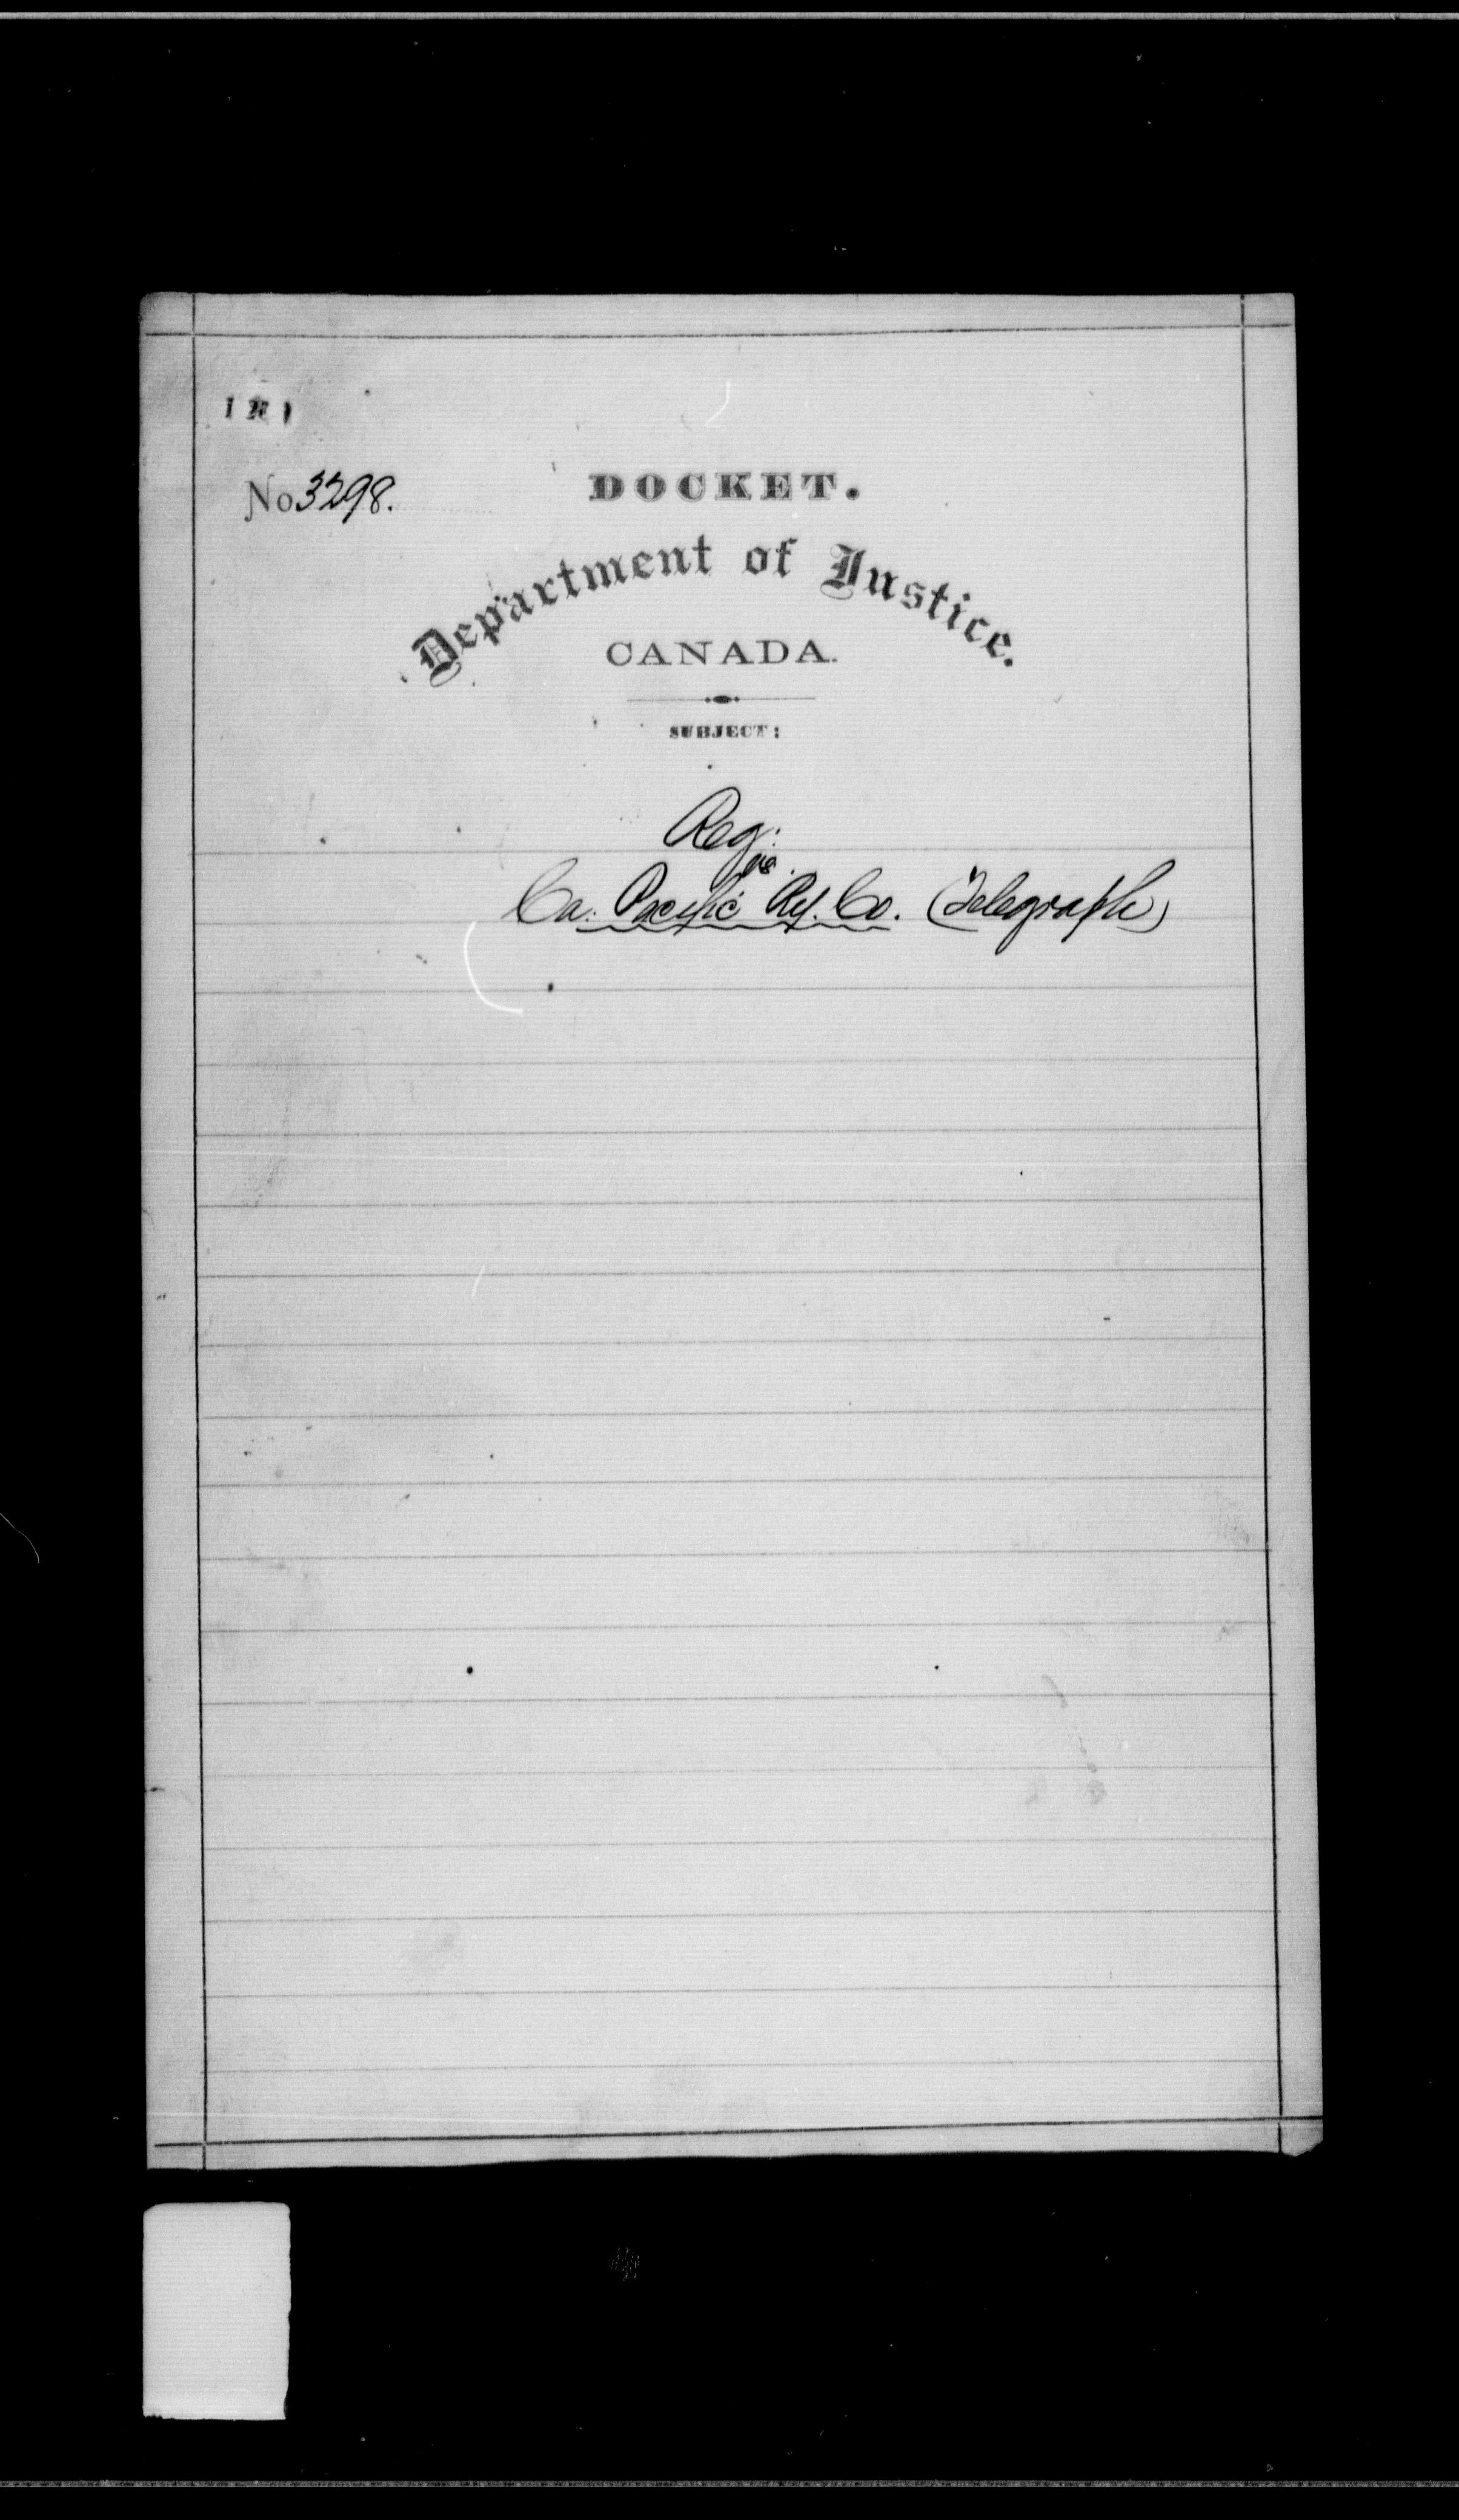 No 3298.
DOCKET.
Department of Justice.
CANADA.
SUBJECT:
Reg:
vs.
Ca. Pacific Ry. Co. (Telegraph)